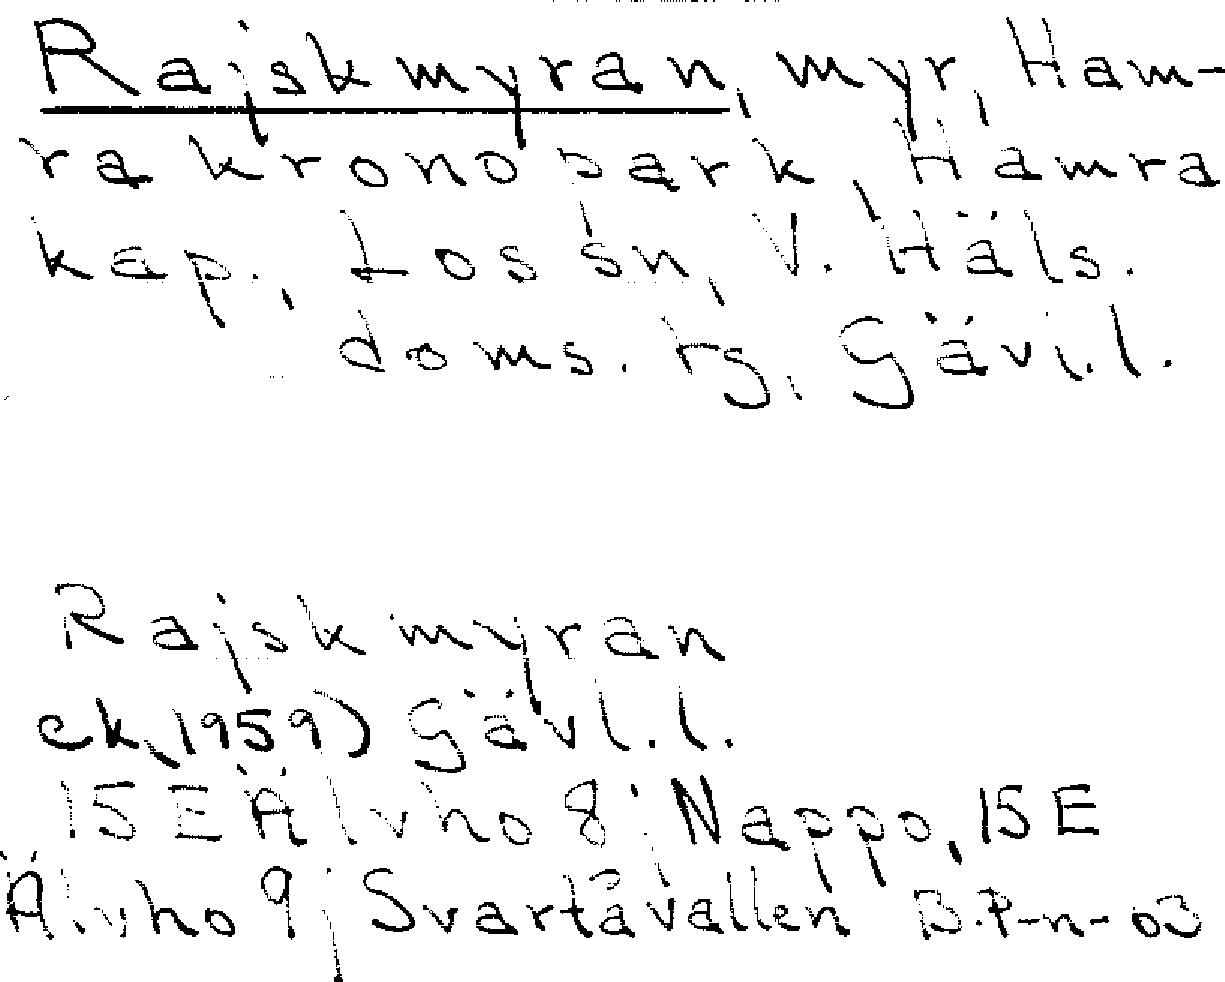 Rajskmyran, myr, Ham-
ra kronopark, Hamra
kap., Los sn, V. Häls.
doms. rg, Gävl.l.
Rajskmyran
ek, 1959) Gävl.l.
15 E Älvho 8j Nappo, 15 E
Älvho 9j Svartåvallen B.P-n-03